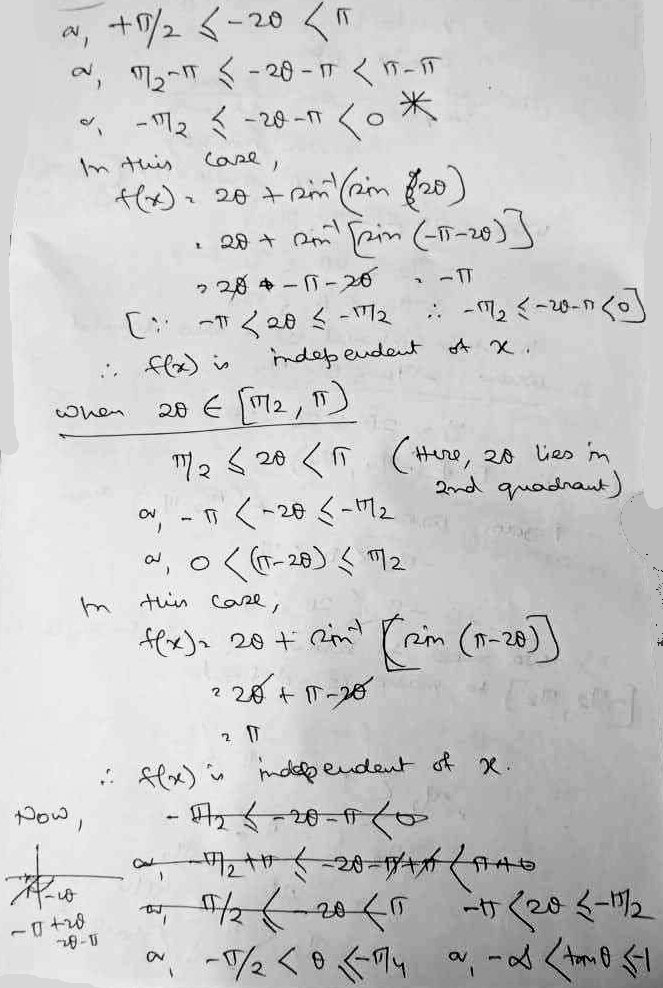 or, +π/2 ≤ -2θ < π
or, π/2-π ≤ -2θ-π < π-π
or, -π/2 ≤ -2θ-π < 0 *
In this case,
f(x) = 2θ + sin⁻¹(sin 2θ)
= 2θ + sin⁻¹[sin (-π-2θ)]
= 2θ + -π-2θ = -π
[∵ -π < 2θ ≤ -π/2 ∴ -π/2 ≤ -2θ-π < 0]
∴ f(x) is independent of x.
when 2θ ∈ [π/2, π)
π/2 ≤ 2θ < π (Here, 2θ lies in
2nd quadrant)
or, -π < -2θ ≤ -π/2
or, 0 < (π-2θ) ≤ π/2
In this case,
f(x) = 2θ + sin⁻¹[sin (π-2θ)]
= 2θ + π-2θ
= π
∴ f(x) is independent of x.
Now, -π/2 ≤ -2θ-π < 0
or, -π/2+π ≤ -2θ-π+π < π+0
or, π/2 ≤ -2θ < π -π < 2θ ≤ -π/2
or, -π/2 < θ ≤ -π/4 or, -∞ < tanθ ≤ -1
-2θ
-π+2θ
-2θ-π